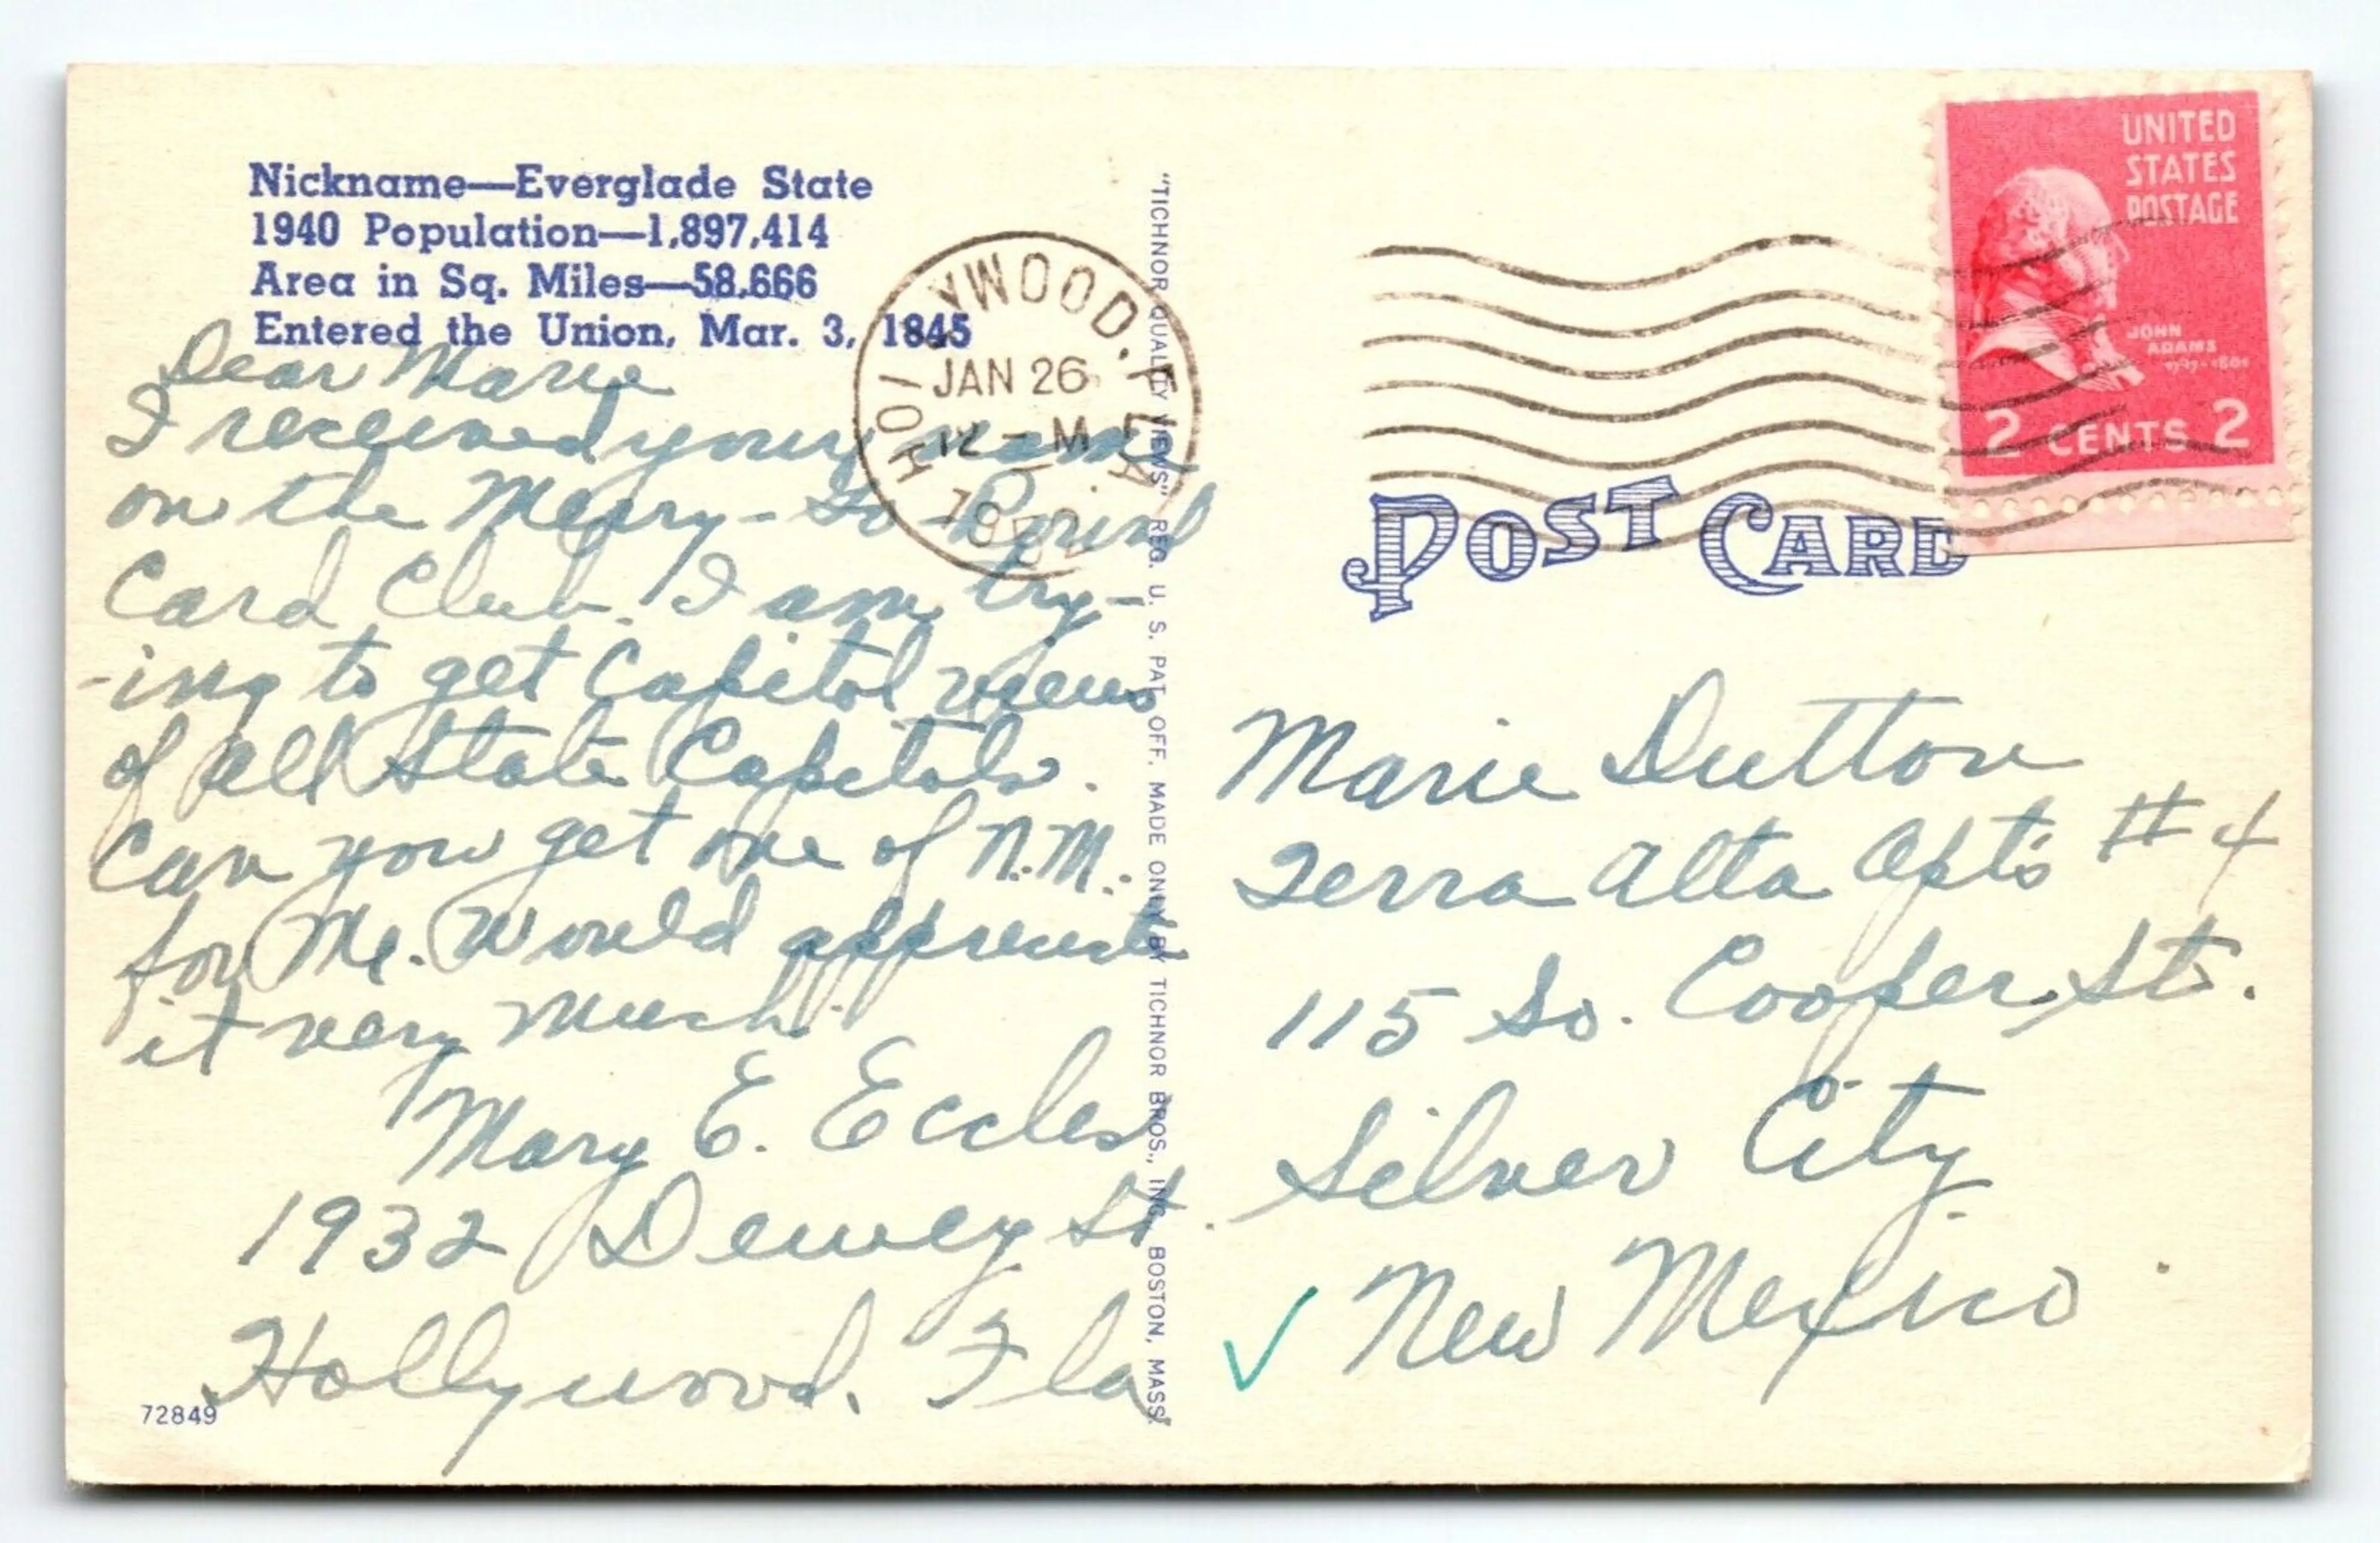 Nickname—Everglade State
1940 Population—1,897,414
Area in Sq. Miles—58,666
Entered the Union, Mar. 3, 1845
Dear Marie
I received your name
on the Merry-Go-Round
Card Club. I am try-
-ing to get Capitol views
of all State Capitols.
Can you get one of N.M.
for Me. Would appreciate
it very much.
Mary E. Eccles
1932 Dewey St.
Hollywood, Fla
72849
HOLLYWOOD, FLA.
JAN 26
12 - M
1952
"TICHNOR QUALITY VIEWS" REG. U. S. PAT. OFF. MADE ONLY BY TICHNOR BROS., INC., BOSTON, MASS.
UNITED
STATES
POSTAGE
JOHN
ADAMS
1797-1801
2 CENTS 2
POST CARD
Marie Dutton
Terra Alta Apt's #4
115 So. Cooper St.
Silver City
New Mexico